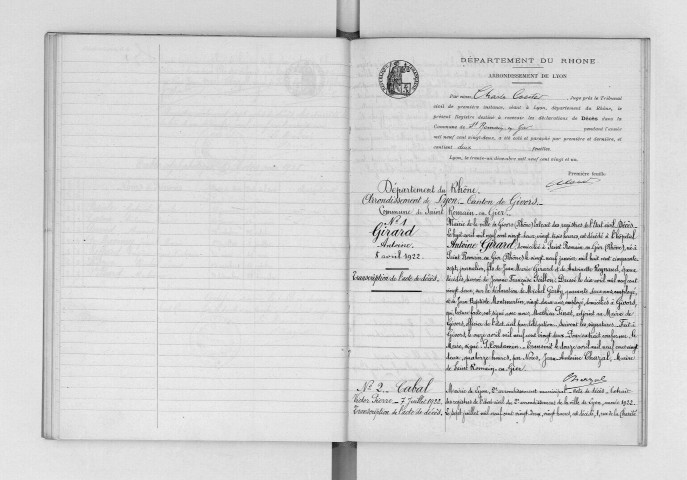 DÉPARTEMENT DU RHÔNE
ARRONDISSEMENT DE LYON
Par nous, Juge près le Tribunal
civil de première instance, séant à Lyon, département du Rhône, le
présent Registre destiné à recevoir les déclarations de Décès dans la
Commune de St Romain en Gier pendant l'année
mil neuf cent vingt-deux, a été coté et paraphé par première et dernière, et
contient deux feuilles.
Lyon, le trente-un décembre mil neuf cent vingt et un.
Première feuille
Département du Rhône.
Arrondissement de Lyon _ Canton de Givors _
Commune de Saint Romain en Gier _
No 1
Girard
Antoine
8 avril 1922.
Transcription de l'acte de décès.
Mairie de la ville de Givors (Rhône) Extrait des registres de l'Etat civil. Décès.
Le huit avril mil neuf cent vingt deux, vingt trois heures, est décédé à l'hôpital,
Antoine Girard, domicilié à Saint Romain en Gier (Rhône), né à
Saint Romain en Gier (Rhône) le vingt neuf janvier mil huit cent cinquante
sept, journalier, fils de Jean Marie Girard et de Antoinette, époux
décédés, de Jeanne Françoise. Dressé le dix avril mil neuf cent
vingt deux, sur la déclaration de Michel, quarante deux ans, employé,
et de Jean Baptiste Montmartin, vingt deux ans, employé, domiciliés à Givors,
qui, lecture faite, ont signé avec nous Mathieu, adjoint au Maire de
Givors, officier de l'état civil par délégation. Suivent les signatures. Fait à
Givors, le onze avril mil neuf cent vingt deux. Pour extrait conforme. Le
Maire, signé. Transcrit le douze avril mil neuf cent vingt
deux, quatorze heures, par Nous, Jean Antoine Chazal, Maire
de Saint Romain en Gier.
Chazal
No 2 _ Cabal
Victor Pierre _ 7 juillet 1922.
Transcription de l'acte de décès.
Mairie de Lyon, 2e arrondissement municipal. Acte de décès. Extrait
des registres de l'état civil du 2e arrondissement de la ville de Lyon, année 1922.
Le sept juillet mil neuf cent vingt deux, vingt heures, est décédé, 1, rue de la Charité